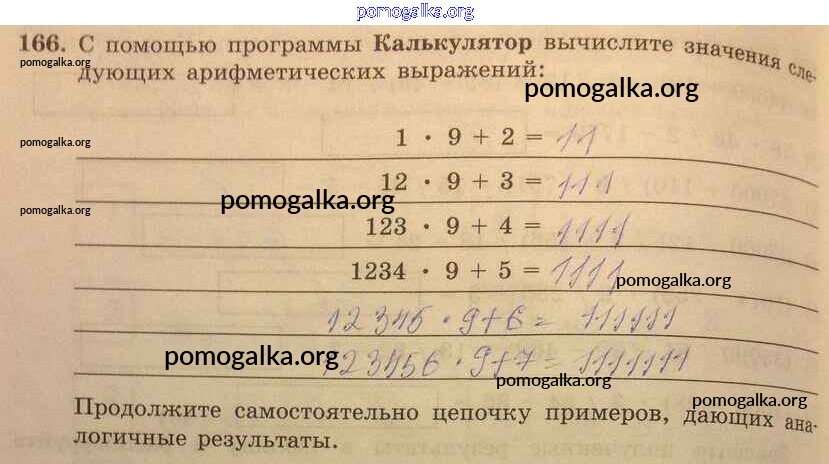 pomogalka.org
166. С помощью программы Калькулятор вычислите значения сле-
pomogalka.org
дующих арифметических выражений:
pomogalka.org
1 · 9 + 2 = 11
pomogalka.org
12 · 9 + 3 = 111
pomogalka.org
pomogalka.org
123 · 9 + 4 = 1111
1234 · 9 + 5 = 1111
pomogalka.org
12345 · 9+6 = 111111
pomogalka.org
123456 · 9+7 = 1111111
pomogalka.org
pomogalka.org
Продолжите самостоятельно цепочку примеров, дающих ана-
логичные результаты.